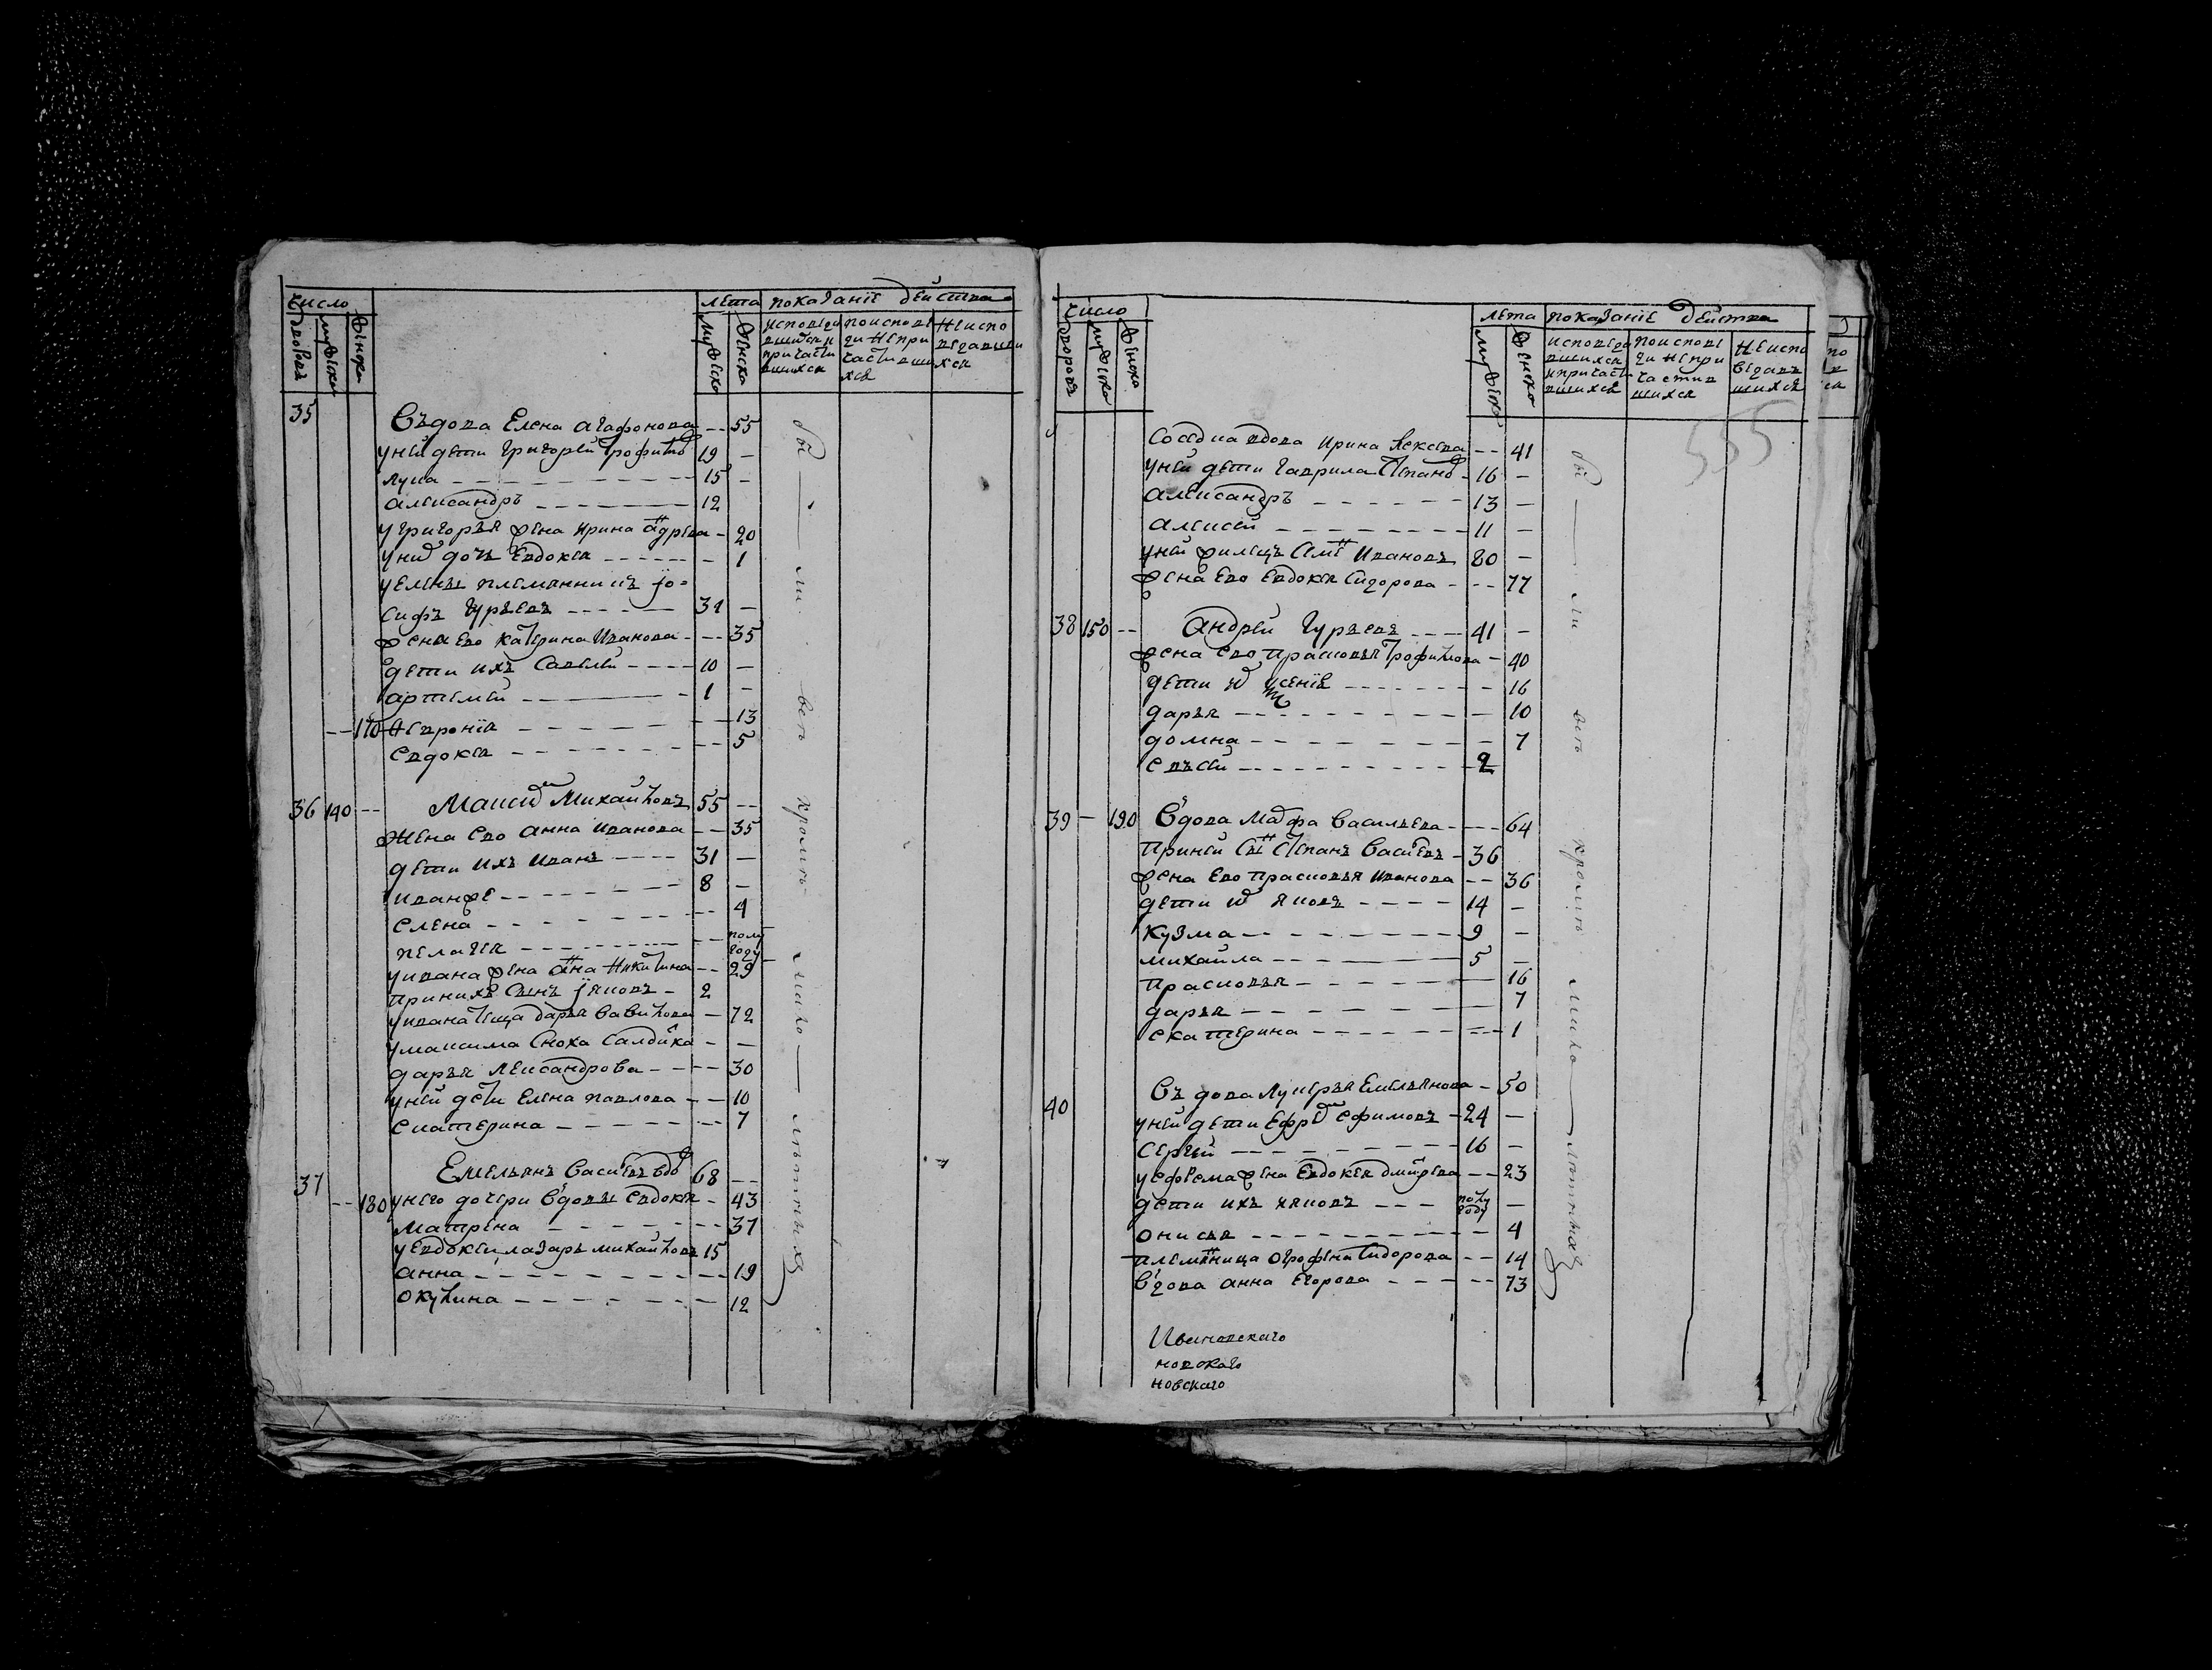 число
лета показанїе действа
дворовъ
мужска
женска
мужска
женска
исповеда
вшихся и
причасти
вшихся
по испове
ди непри
частивши
хся
неиспо
ведавши
хся
35 Въдова Елена Агафонова -- 55
у ней дети Григорей Трофимо 19 -
Лука 15 -
Александръ 12
у Григорья жена Ирина Андреева - 20
у них дочь Евдокея - 1
у Елены племянникъ Іо=
сифъ Гурьевъ 31 -
жена ево Катерина Иванова -- 35
дети ихъ Савелей 10 -
Артемей 1 -
-- 170 Февронїя -- 13
Евдокея -- 5
36 140 -- Максим Михайловъ 55 --
Жена ево Анна Иванова -- 35
дети ихъ Иванъ 31 -
Иванже 8 -
Елена -- 4
Пелагея -- полу
году
у Ивана жена Анна Никитина -- 29
при них сынъ Іяковъ 2
у Ивана теща Дарья Вавилова - 72
у Максима сноха салдатка - -
Дарья Александрова -- 30
у ней дети Елена Павлова -- 10
Екатерина -- 7
37 Емельянъ Васильевъ вдов 68 --
-- 180 у него дочери вдовы Евдокея - 43
Матрена -- 37
у Евдокеи Лазарь Михайловъ 15
Анна -- 19
Окулина -- 12
бы — ли вси кроме мало — летных
число
лета показанїе действа
дворовъ
мужска
женска
мужска
женска
исповеда
вшихся
и причасти
вшихся
по испове
ди непри
частив
шихся
неиспо
ведав
шихся
555
соседка вдова Ирина Алексеева -- 41
у ней дети Гаврила Степано 16 -
Александръ 13 -
Алексей 11 -
у ней жилецъ Семен Ивановъ 80 -
жена ево Евдокея Сидорова -- 77
38 150 -- Андрей Гурьевъ 41 -
жена ево Прасковья Трофимова - 40
дети их Ксенїя - 16
Дарья - 10
Домна - 7
Евсей 2
39 - 190 Вдова Марфа Васильева -- 64
при ней сын Степанъ Васильевъ 36
жена ево Прасковья Иванова -- 36
дети их Яковъ 14 -
Кузма 9 -
Михайла 5 -
Прасковья - 16
Дарья - 7
Екатерина -- 1
40 Въдова Лукерья Емельянова - 50
у ней дети Ефрем Ефимовъ 24 -
Сергей 16 -
у Ефрема жена Евдокея Дмитрева -- 23
дети ихъ Іяковъ полу
году -
Онисья - 4
племянница Огрофена Сидорова -- 14
вдова Анна Егорова -- 73
бы — ли вси кроме мало — летных
новскаго
новскаго